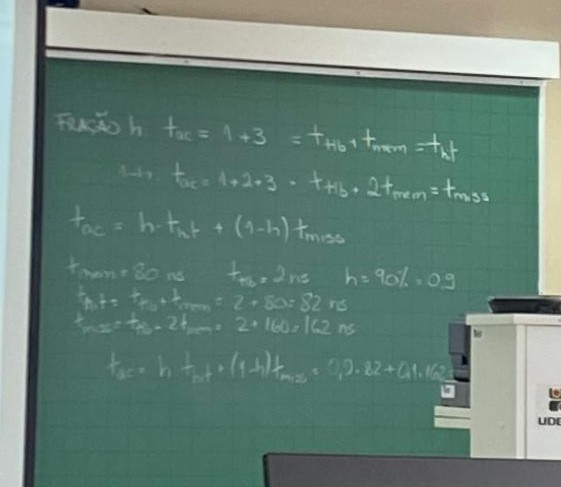 FRAÇÃO h t_ac = 1+3 = t_tlb + t_mem = t_hit
1-h t_ac = 1+2+3 = t_tlb + 2t_mem = t_miss
t_ac = h·t_hit + (1-h) t_miss
t_mem = 80 ns t_tlb = 2 ns h = 90% = 0,9
t_hit = t_tlb + t_mem = 2 + 80 = 82 ns
t_miss = t_tlb + 2t_mem = 2 + 160 = 162 ns
t_ac = h t_hit + (1-h) t_miss = 0,9·82 + 0,1·162
UDE